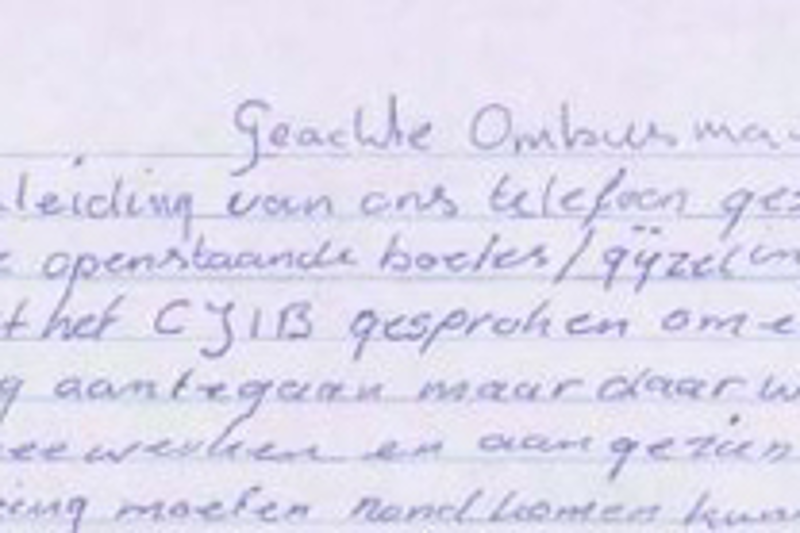 Geachte Ombusma
leiding van ons telefoon ges
openstaande boetes / gijzelin
t het CJIB gesproken om e
g aantegaan maar daar w
eewerken en aangezien
ing moeten rondkomen kun